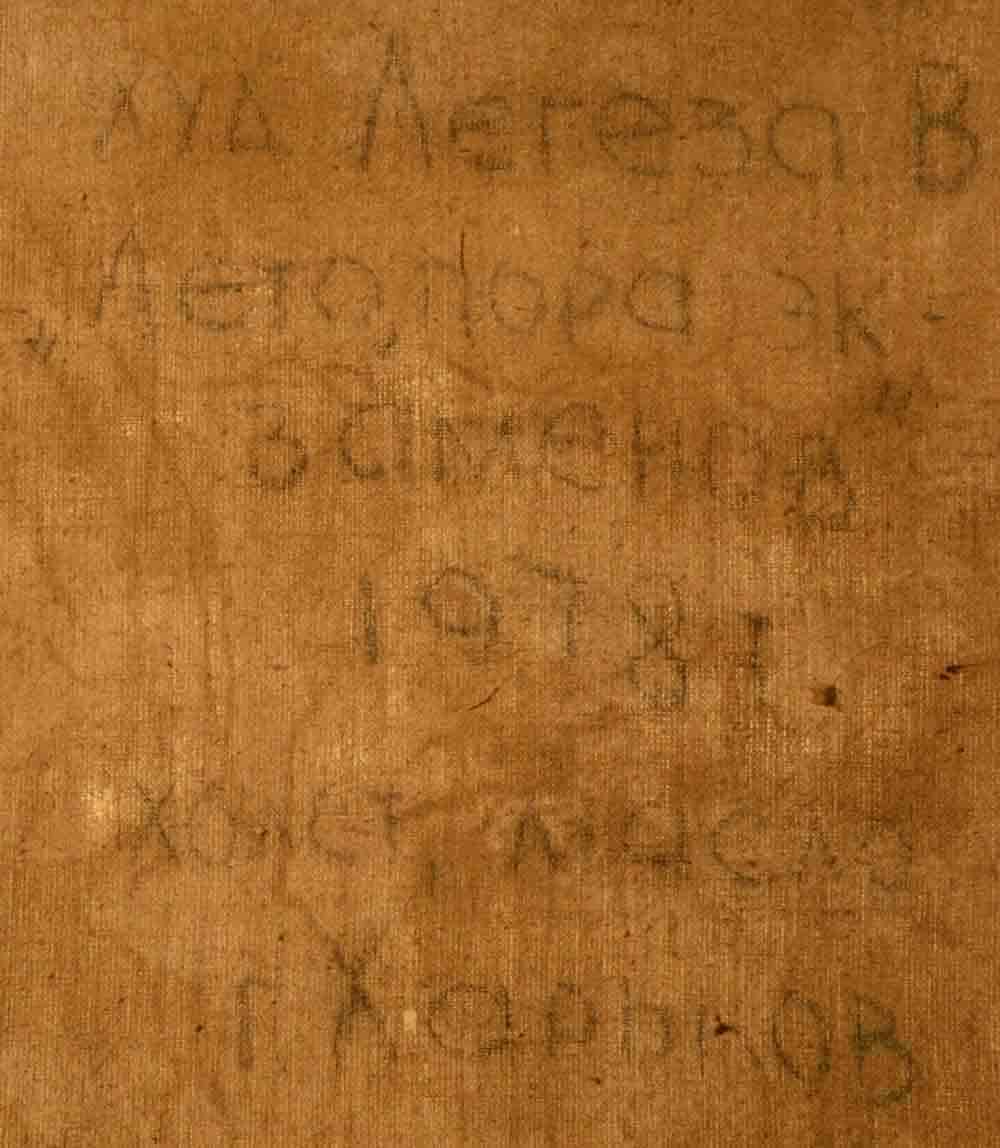 худ Легеза В
Летопора эк-
заменов
1978 г
холст масло
г Харьков